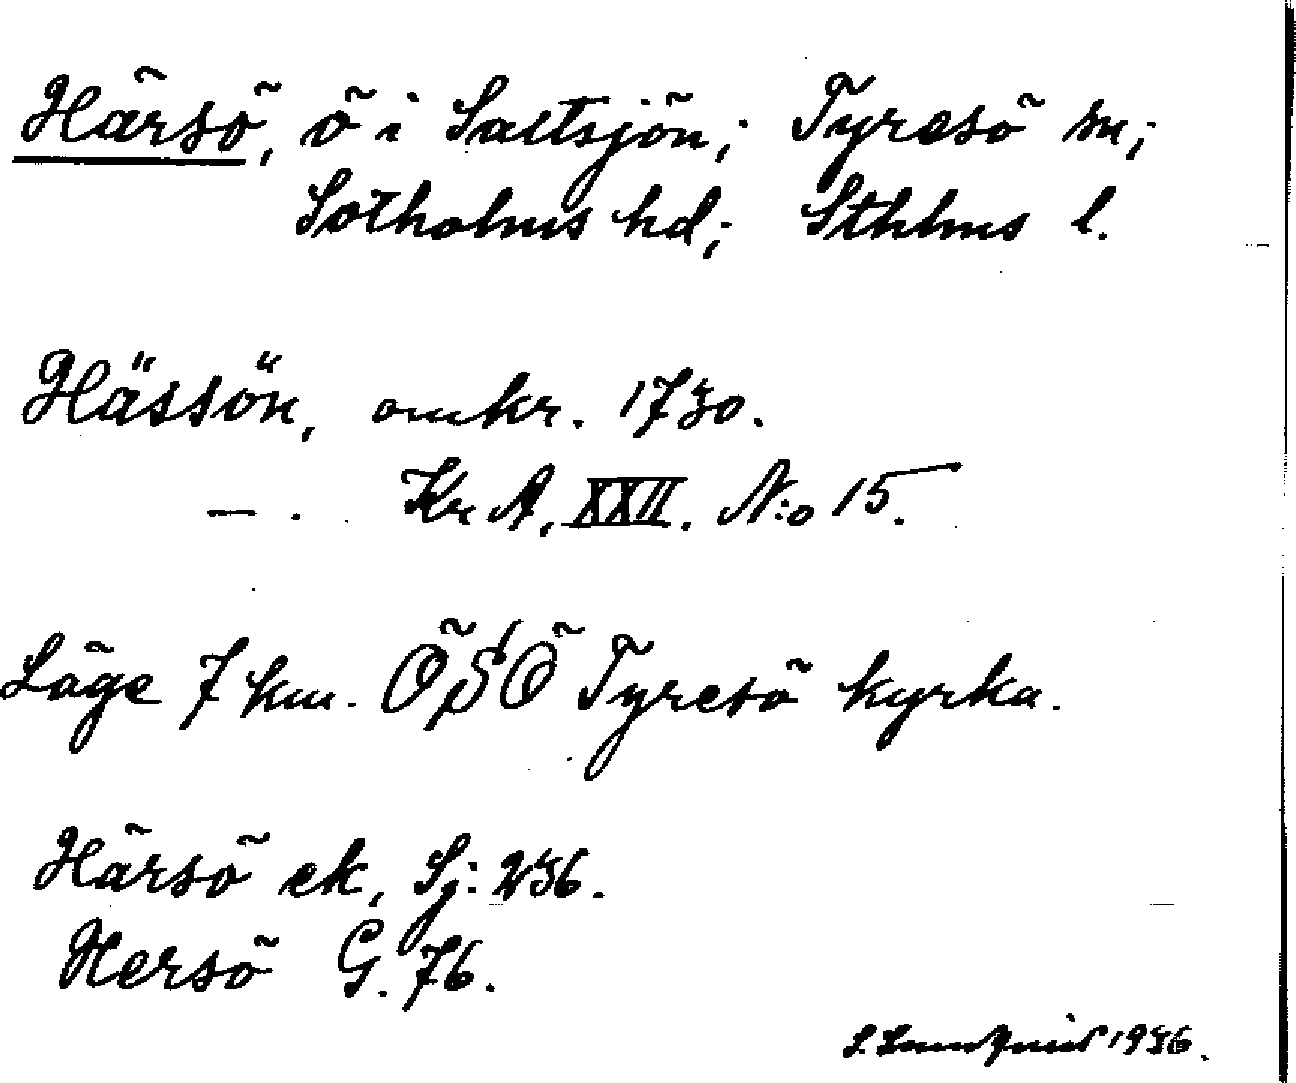 Härsö, ö i Saltsjön; Tyresö sn;
Sotholms hd; Sthlms l.
Hässön, omkr. 1730.
— . Kr A, XXII. N:o 15.
Läge 7 km. ÖSÖ Tyresö kyrka.
Härsö ek, Sj: 236.
Hersö G. 76.
1936.